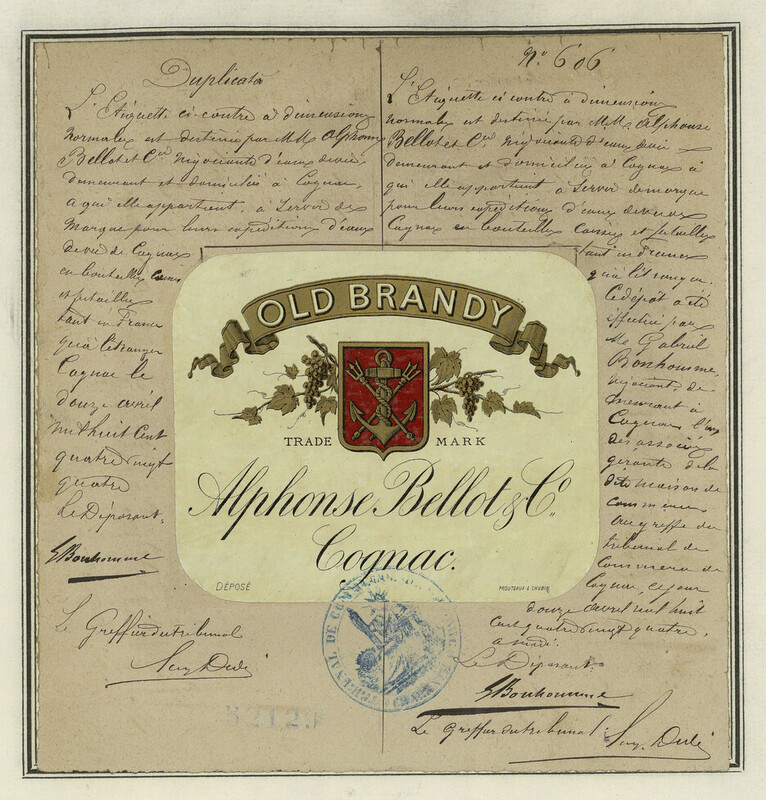 Duplicata
L'Etiquette ci-contre à dimensions
normales est destinée par M.M. Alphonse
Bellot et Cie négociants d'eaux de vie
demeurant et domiciliés à Cognac,
a qui elle appartient, à servir de
marque pour leurs expéditions d'eaux
de vie de Cognac
en bouteilles, caisses
et futailles
tant en France
qu'à l'étranger
Cognac le
douze avril
mil huit cent
quatre vingt
quatre
Le Déposant.
G Bonhomme
Le Greffier du tribunal
No 606
L'Etiquette ci contre à dimensions
normales est destinée par M.M. Alphonse
Bellot et Cie négociants d'eaux de vie
demeurant et domiciliés à Cognac à
qui elle appartient à servir de marque
pour leurs expéditions d'eaux de vie de
Cognac en bouteilles caisses et futailles
tant en France
qu'à l'étranger.
Le dépôt a été
effectué par
Mr Gabriel
Bonhomme,
négociant, de-
meurant à
Cognac l'un
des associés
gérants de la
dite maison de
commerce
au greffe du
tribunal de
commerce de
Cognac, ce jour
douze avril mil huit
cent quatre vingt quatre,
à midi.
Le Déposant.
G Bonhomme
Le Greffier du tribunal
OLD BRANDY
TRADE MARK
Alphonse Bellot & Co.
Cognac.
DÉPOSÉ
TRIBUNAL DE COMMERCE
52129